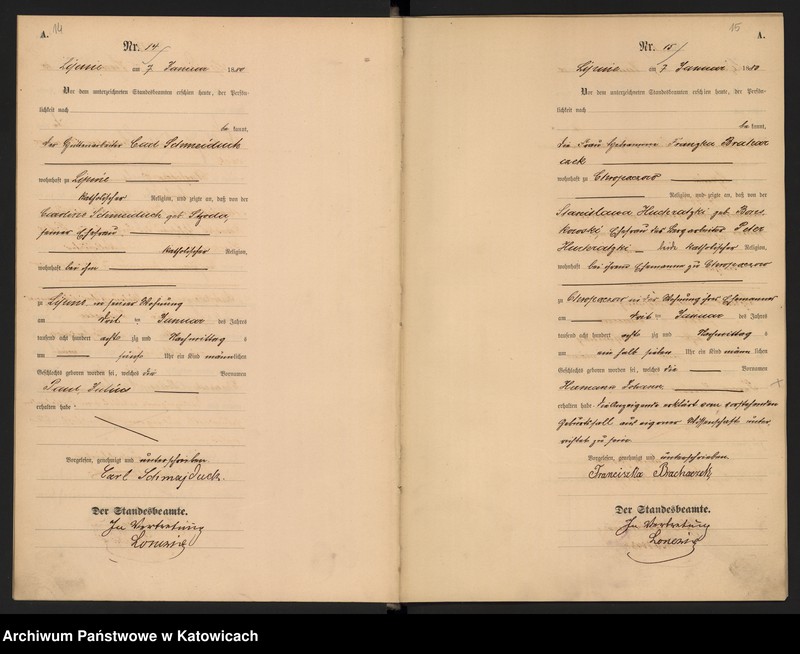 A. 14
Nr. 14
Lipine am 7 Januar 1880
Vor dem unterzeichneten Standesbeamten erschien heute, der Persön-
lichkeit nach
be kannt,
der Hüttenarbeiter Carl Schmeiduck
wohnhaft zu Lipine
katholischer Religion, und zeigte an, daß von der
Schmeiduch geb
seiner Ehefrau
katholischer Religion,
wohnhaft bei ihm
zu Lipine in seiner Wohnung
am Januar des Jahres
tausend acht hundert acht zig und Nachmittag s
um fünf Uhr ein Kind männlichen
Geschlechts geboren worden sei, welches die Vornamen
Paul Julius
erhalten habe
Vorgelesen, genehmigt und unterschrieben
Carl Schmajduck.
Der Standesbeamte.
In Vertretung
15 A.
Nr. 15
Lipine am 7 Januar 1880
Vor dem unterzeichneten Standesbeamten erschien heute, der Persön-
lichkeit nach
be kannt,
die Frau Hebamme Franzka
czek
wohnhaft zu Chropaczow
Religion, und zeigte an, daß von der
Stanislawa geb
kowski Ehefrau des Bergarbeiter Peter
beide katholischer Religion,
wohnhaft bei ihrem Ehemanne zu Chropaczow
zu Chropaczow in der Wohnung ihres Ehemannes
am Januar des Jahres
tausend acht hundert acht zig und Nachmittag s
um ein halb sieben Uhr ein Kind männ lichen
Geschlechts geboren worden sei, welches die Vornamen
Johann
erhalten habe die Anzeigende erklärt vom vorstehenden
Geburtsfall aus eigener Wissenschaft unter
richtet zu sein
Vorgelesen, genehmigt und unterschrieben.
Franciszka Brachaczek
Der Standesbeamte.
In Vertretung
Archiwum Państwowe w Katowicach